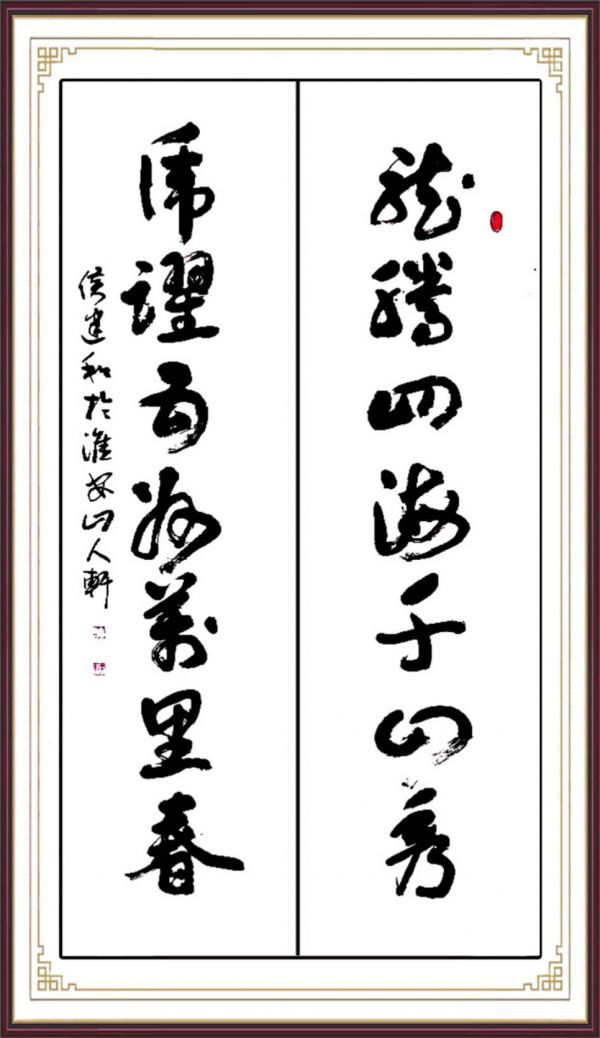 龍騰四海千山秀
虎躍五洲萬里春
侯建和於淮安山人軒